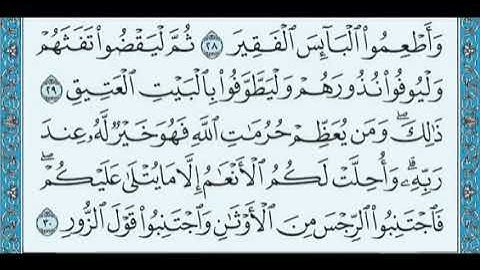 وَأَطْعِمُوا۟ ٱلْبَآئِسَ ٱلْفَقِيرَ ٢٨ ثُمَّ لْيَقْضُوا۟ تَفَثَهُمْ
وَلْيُوفُوا۟ نُذُورَهُمْ وَلْيَطَّوَّفُوا۟ بِٱلْبَيْتِ ٱلْعَتِيقِ ٢٩
ذَٰلِكَۖ وَمَن يُعَظِّمْ حُرُمَٰتِ ٱللَّهِ فَهُوَ خَيْرٌ لَّهُۥ عِندَ
رَبِّهِۦۗ وَأُحِلَّتْ لَكُمُ ٱلْأَنْعَٰمُ إِلَّا مَا يُتْلَىٰ عَلَيْكُمْۖ
فَٱجْتَنِبُوا۟ ٱلرِّجْسَ مِنَ ٱلْأَوْثَٰنِ وَٱجْتَنِبُوا۟ قَوْلَ ٱلزُّورِ ٣٠